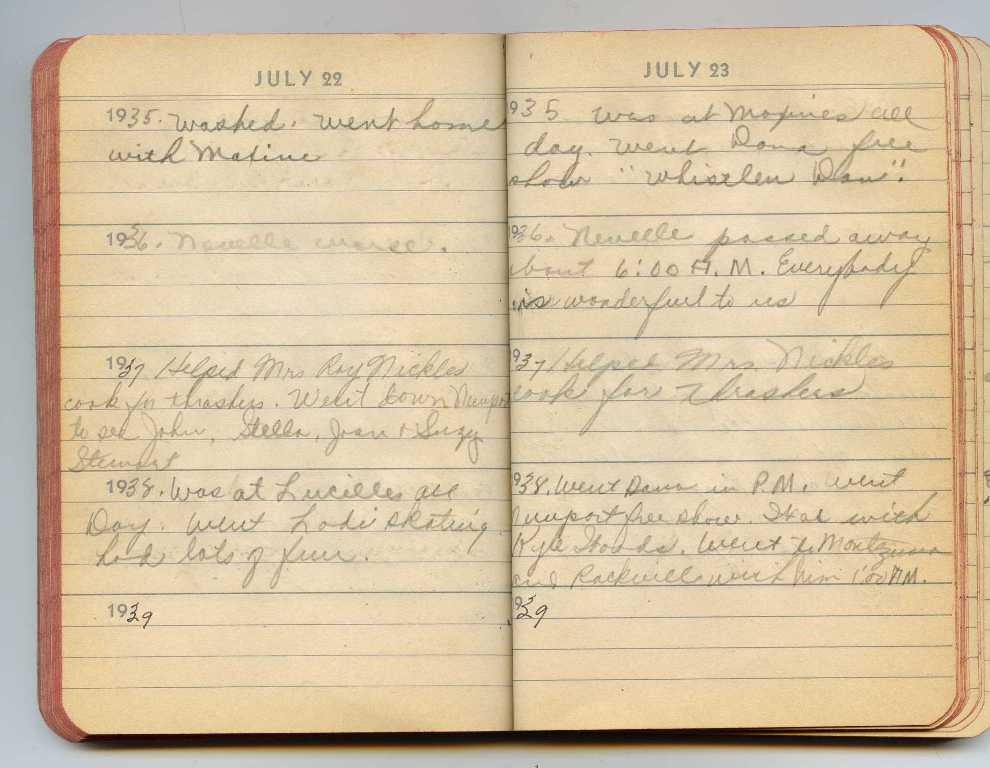 JULY 22
1935. Washed. Went home
with Maxine
1936. Nevelle worse.
1937 Helped Mrs Roy Nickles
cook for thrashers. Went down Newport
to see John, Stella, Joan & Suzy
Stewart
1938. Was at Lucilles all
Day. Went Lodi skating
had lots of fun.
1939
JULY 23
935 Was at Maxines all
day. Went Dana free
show "Whistlen Dan".
936. Nevelle passed away
about 6:00 A.M. Everybody
is wonderful to us
937 Helped Mrs. Nickles
cook for thrashers
938. Went Dana in P.M. Went
Newport free show. with
Kyle Woods. Went to Montezuma
and Rockville with him 1:00 AM.
939